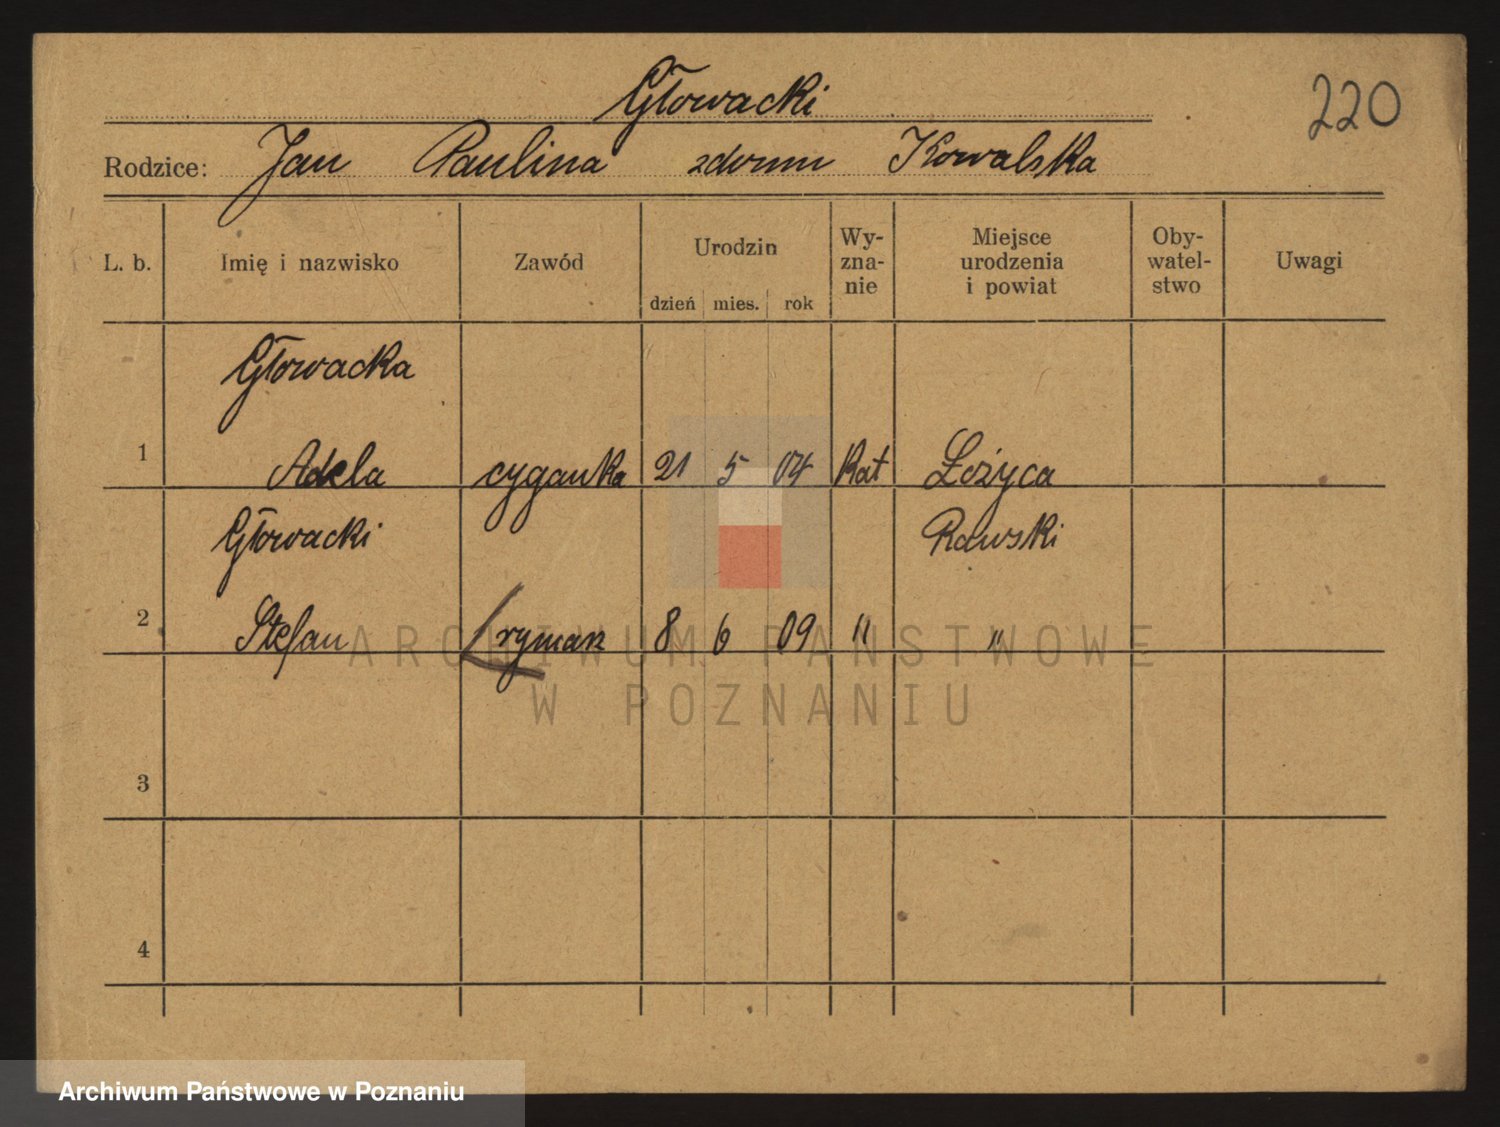 Głowacki
220
Rodzice: Jan Paulina zdomu Kowalska
L. b. Imię i nazwisko Zawód Urodzin Wy- zna- nie Miejsce urodzenia i powiat Oby- watel- stwo Uwagi
dzień mies. rok
Głowacka
1 Adela cyganka 21 5 04 Kat Łożyca
Głowacki Rawski
2 Stefan rymarz 8 6 09 " "
ARCHIWUM PAŃSTWOWE
W POZNANIU
3
4
Archiwum Państwowe w Poznaniu